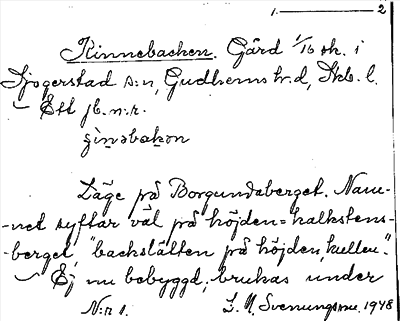 1. 2
Kinnebacken. Gård 1/16 sk. i
Sjogerstad s:n, Gudhems h:d, Skb. l.
– Ett jb. n:r.
Läge på Borgundaberget. Nam-
-net syftar väl på höjden = kalkstens-
-berget, "backslätten på höjden, kullen".
– Ej nu bebyggd; brukas under
N:r 1. Svenungsson, 1948